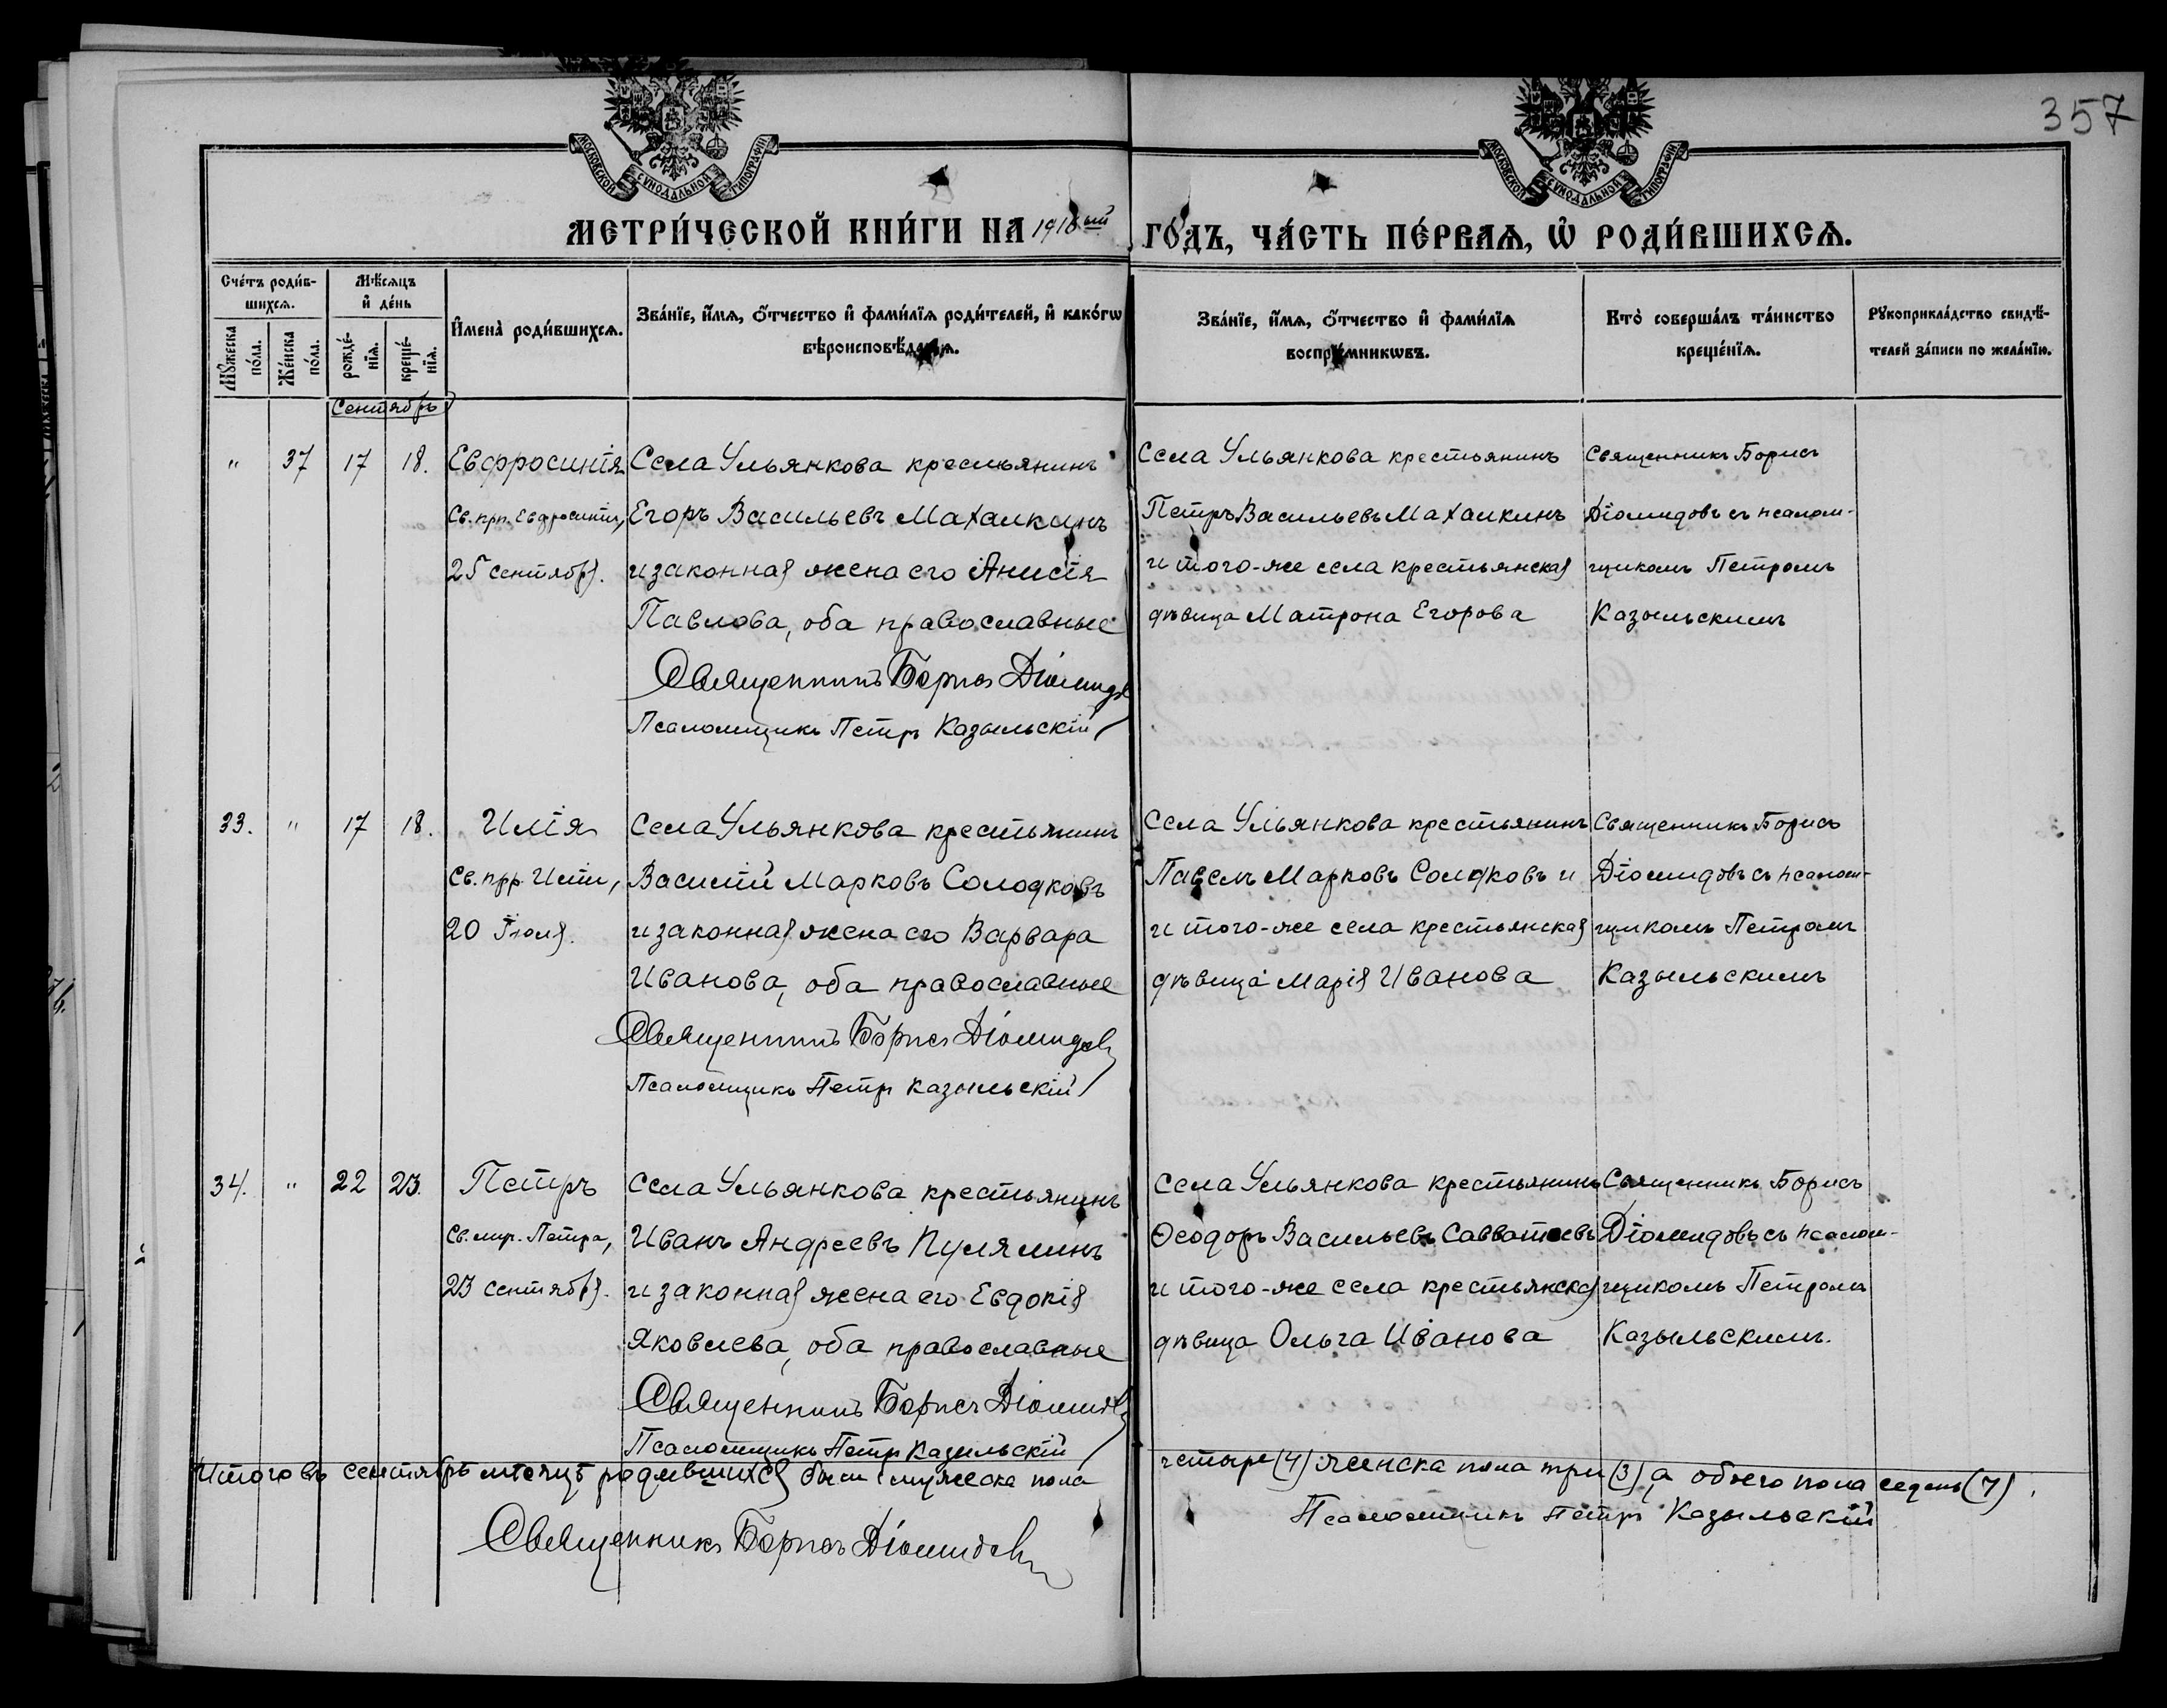 357
МОСКОВСКОЙ СУНОДАЛЬНОЙ ТИПОГРАФІИ
МОСКОВСКОЙ СУНОДАЛЬНОЙ ТИПОГРАФІИ
МЕТРИ́ЧЕСКОЙ КНИ́ГИ НА 1916ый ГО́ДЪ, ЧА́СТЬ ПЕ́РВАѦ, Ѡ РОДИ́ВШИХСѦ.
Сче́тъ роди́в-
шихсѧ.
Мꙋ́жеска по́ла.
Же́нска по́ла.
Мѣ́сѧцъ
и҆ де́нь
рожде́-
нїѧ.
креще́-
нїѧ.
И҆мена̀ роди́вшихсѧ.
Зва́нїе, и҆́мѧ, ѻ҆́тчество и҆ фами́лїѧ роди́телей, и҆ како́гѡ
вѣроисповѣ́данїѧ.
Зва́нїе, и҆́мѧ, ѻ҆́тчество и҆ фами́лїѧ
воспрїе́мникѡвъ.
Кто̀ соверша́лъ та́инство
креще́нїѧ.
Рꙋкоприкла́дство свидѣ́-
телей за́писи по жела́нїю.
Сентябрь
" 37 17 18.
Евфросинія
Св. прп. Евфросиніи,
25 сентября.
Села Ульянкова крестьянинъ
Егоръ Васильевъ Махалкинъ
и законная жена его Анисія
Павлова, оба православные
Священникъ Борисъ Діомидовъ
Псаломщикъ Петръ Казыльскій
Села Ульянкова крестьянинъ
Петръ Васильевъ Махалкинъ
и того-же села крестьянская
дѣвица Матрона Егорова
Священникъ Борисъ
Діомидовъ съ псалом-
щикомъ Петромъ
Казыльскимъ
33. " 17 18.
Илія
Св. прр. Иліи,
20 Іюля.
Села Ульянкова крестьянинъ
Василій Марковъ Солодковъ
и законная жена его Варвара
Иванова, оба православные
Священникъ Борисъ Діомидовъ
Псаломщикъ Петръ Казыльскій
Села Ульянкова крестьянинъ
Павелъ Марковъ Солодковъ и
и того-же села крестьянская
дѣвица Марія Иванова
Священникъ Борисъ
Діомидовъ съ псалом-
щикомъ Петромъ
Казыльскимъ
34. " 22 23.
Петръ
Св. мр. Петра,
23 сентября.
Села Ульянкова крестьянинъ
Иванъ Андреевъ Пулялинъ
и законная жена его Евдокія
Яковлева, оба православные
Священникъ Борисъ Діомидовъ
Псаломщикъ Петръ Казыльскій
Села Ульянкова крестьянинъ
Ѳеодоръ Васильевъ Савватѣевъ
и того-же села крестьянская
дѣвица Ольга Иванова
Священникъ Борисъ
Діомидовъ съ псалом-
щикомъ Петромъ
Казыльскимъ.
Итого въ сентябрѣ мѣсяцѣ родившихся было мужеска пола четыре (4) женска пола три (3), а обоего пола седмь (7).
Священникъ Борисъ Діомидовъ
Псаломщикъ Петръ Казыльскій